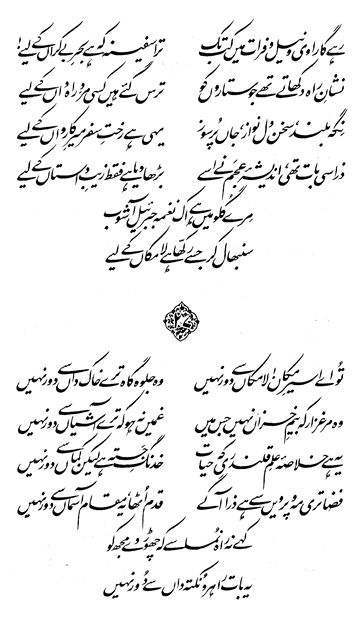 رہے گا راوی و نیل و فرات میں کب تک ترا سفینہ کہ ہے بحرِ بے کراں کے لیے!
نشانِ راہ دکھاتے تھے جو ستاروں کو ترس گئے ہیں کسی مردِ راہ داں کے لیے
نگہ بلند، سخن دل نواز، جاں پُرسوز یہی ہے رختِ سفر میرِ کارواں کے لیے
ذرا سی بات تھی، اندیشۂ عجم نے اسے بڑھا دیا ہے فقط زیبِ داستاں کے لیے
مرے گلو میں ہے اک نغمہ جبرئیل آشوب
سنبھال کر جسے رکھا ہے لامکاں کے لیے
تُو اے اسیرِ مکاں! لامکاں سے دور نہیں وہ جلوہ گاہ ترے خاک داں سے دور نہیں
وہ مرغزار کہ بیمِ خزاں نہیں جس میں غمیں نہ ہو کہ ترے آشیاں سے دور نہیں
یہ ہے خلاصۂ علمِ قلندری کہ حیات خدنگِ جستہ ہے لیکن کماں سے دور نہیں
فضا تری مہ و پرویں سے ہے ذرا آگے قدم اُٹھا، یہ مقام آسماں سے دور نہیں
کہے نہ راہ نما سے کہ چھوڑ دے مجھ کو
یہ بات راہروِ نکتہ داں سے دُور نہیں